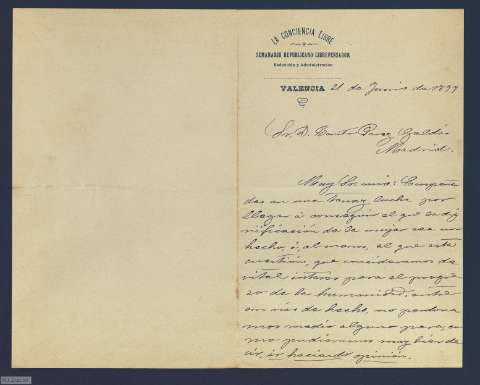 LA CONCIENCIA LIBRE
SEMANARIO REPUBLICANO LIBREPENSADOR
Redacción y Administración
VALENCIA 21 de Junio de 1899
Sr. D. Benito Perez Galdós
Madrid.
Muy Sr. mio: Empeña
das en una tenaz lucha por
llegar á conseguir el que la dig
nificación de la mujer sea un
hecho, ó, al menos, al que esta
cuestión, que consideramos de
vital interes para el progre
so de la humanidad, entre
en vias de hecho, no perdona
mos medio alguno para, co
mo pudieramos muy bien de
cir, ir haciendo opinión.